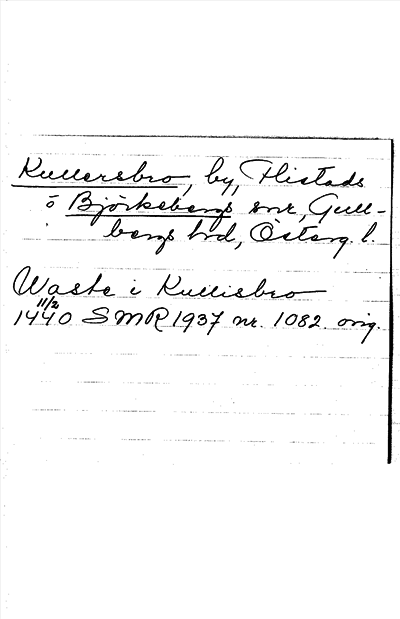 Kullersbro, by, Flistads
o Björkebergs snr, Gull-
bergs hrd, Österg. l.
Waste i Kullisbro
11/2
1440 SMR 1937 nr. 1082 orig.